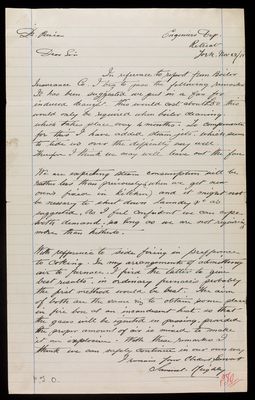 Engineers Dep.
Retreat
York. Nov 29/
Dear Sir
In reference to report from Boiler
Insurance Co. I beg to pass the following remarks
It has been suggested we put in a fan for
induced draught. This would cost about & this
would only be required when boiler cleaning
which takes place every 4 months. To compensate
for this I have added steam jets which seem
to tide us over the difficulty very well.
Therefore I think we may well leave out the fan
We are expecting steam consumption will be
rather less than previously when we get new
ovens fixed in kitchen and it ought not
be necessary to shut down Laundry &c as
suggested. As I feel confident we can cope
both demand, so long as we are not requiring
more than hitherto.
With reference to side firing in preference
to Coking. In my arrangements of admitting
air to furnace I find the latter to give
best results, in ordinary furnaces probably
the first method would be best. The aim
of both are the same viz to obtain some place
in fire box at an incandescent heat so that
the gases will be ignited in passing provided
the proper amount of air is mixed to make
it an explosion. With these remarks I
think we can safely continue in our own way.
I remain Your Obedient Servant
Samuel